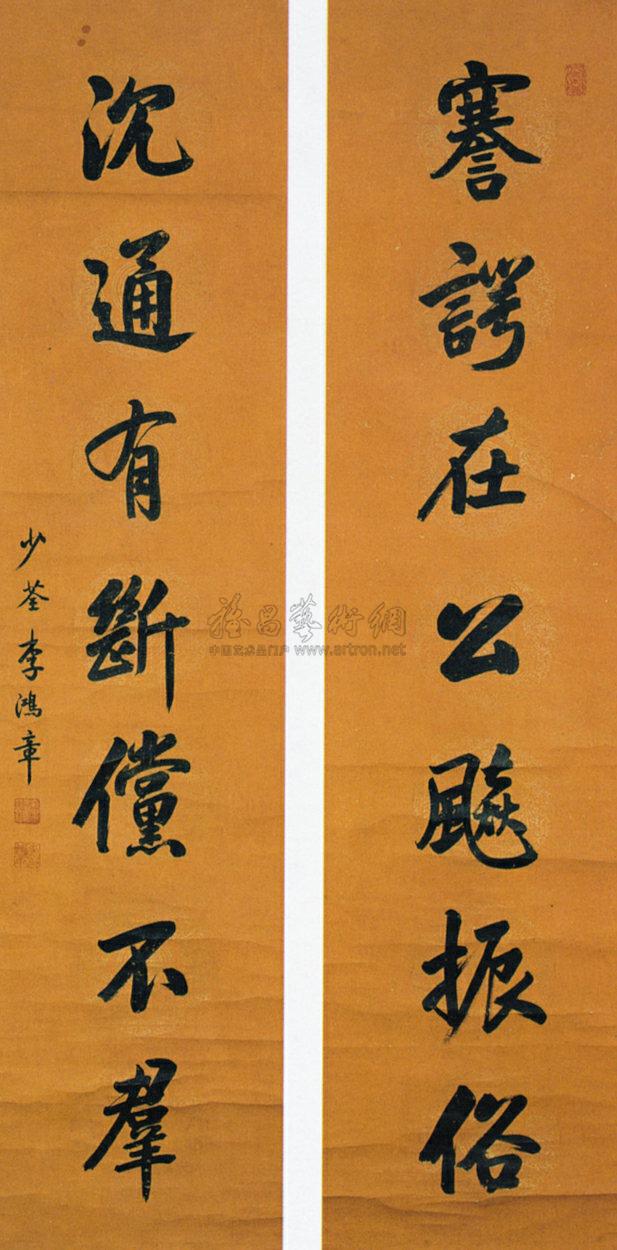 謇諤在公飈振俗
沉通有斷儻不羣
少荃李鴻章
雅昌藝術網
中国艺术品门户 www.artron.net